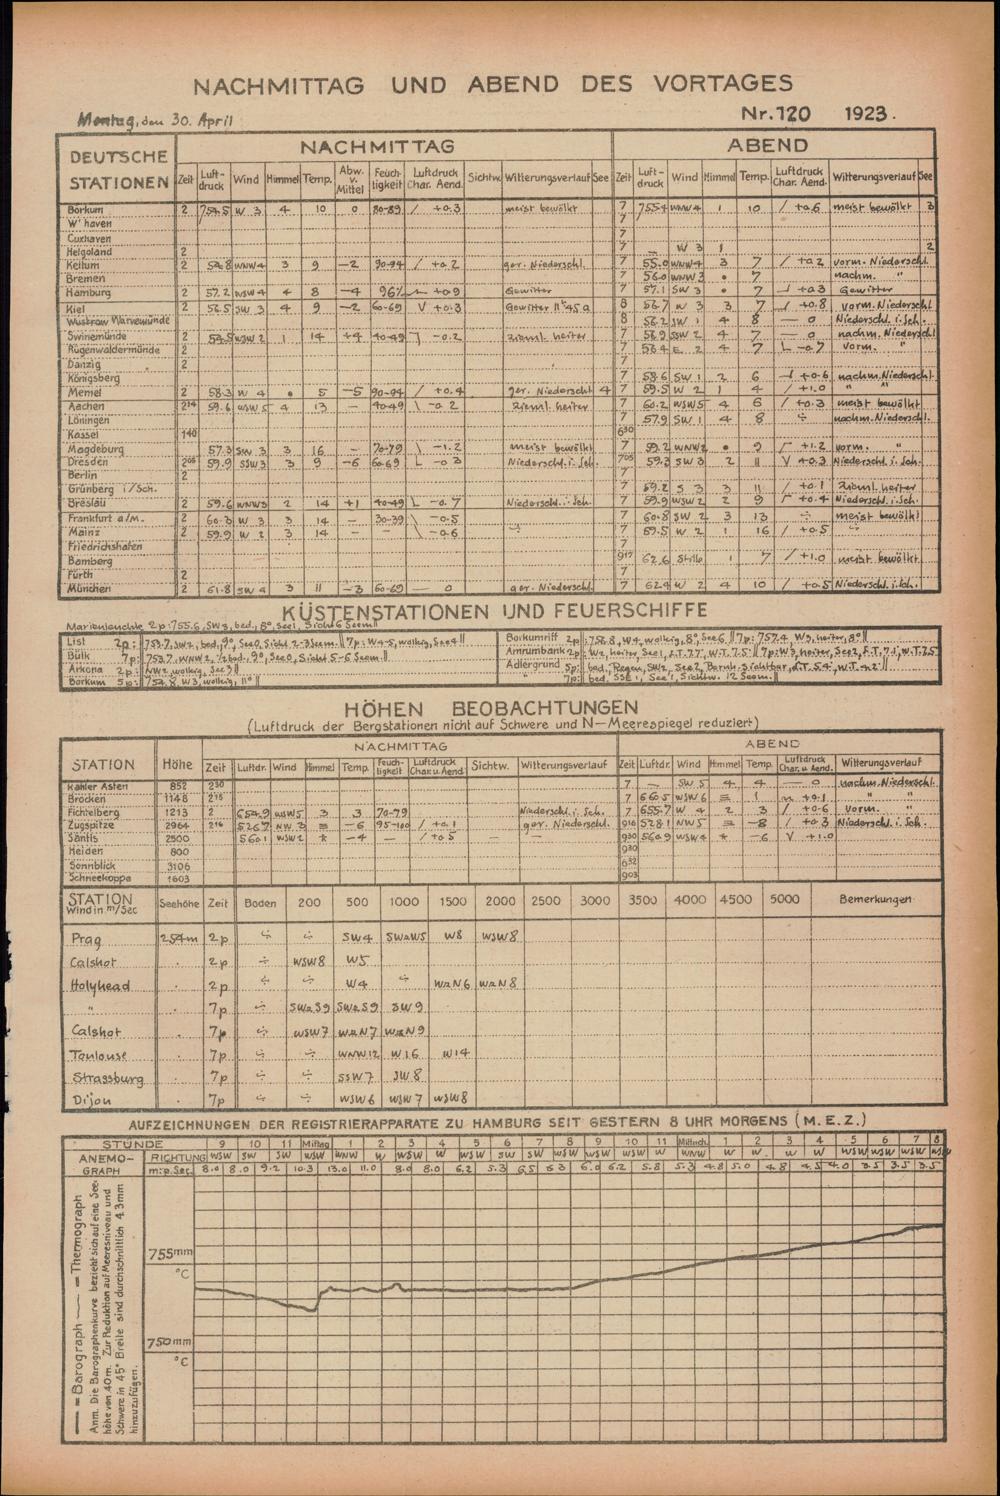 NACHMITTAG UND ABEND DES VORTAGES
Montag, den 30. April Nr. 120 1923.
DEUTSCHE STATIONEN NACHMITTAG ABEND
Zeit Luft-druck Wind Himmel Temp. Abw. v. Mittel Feuch-tigkeit Luftdruck Char. Aend. Sichtw. Witterungsverlauf See Zeit Luft-druck Wind Himmel Temp. Luftdruck Char. Aend. Witterungsverlauf See
Borkum 2 754.5 W 3 4 10 0 80-89 / +0.3 meist bewölkt 7 755.4 WNW 4 1 10 / +0.6 meist bewölkt 3
W'haven 7
Cuxhaven 7
Helgoland 2 7 — W 3 1 2
Keitum 2 54.8 WNW 4 3 9 −2 90-94 / +0.2 ger. Niederschl. 7 55.0 WNW 4 3 7 / +0.2 vorm. Niederschl.
Bremen 7 56.0 WNW 3 • 7 nachm. "
Hamburg 2 57.2 WSW 4 4 8 −4 96% +0.9 Gewitter 7 57.1 SW 3 • 7 +0.3 Gewitter
Kiel 2 56.5 SW 3 4 9 −2 60-69 V +0.3 Gewitter 8 56.7 W 3 3 7 +0.8 vorm. Niederschl.
Wustrow Warnemünde 8 56.2 SW 1 4 8 — 0 Niederschl. i. Sch.
Swinemünde 2 WSW 2 1 14 +4 40-49 −0.2 zieml. heiter 7 58.9 SSW 2 4 7 — 0 nachm. Niederschl.
Rügenwaldermünde 2 7 58.4 E 2 4 7 L −0.7 vorm. "
Danzig 2 7
Königsberg 7 58.6 SW 1 2 6 +0.6 nachm. Niederschl.
Memel 2 58.3 W 4 • 5 −5 90-94 / +0.4 ger. Niederschl. 4 7 59.5 W 2 1 4 / +1.0 " "
Aachen 2¹⁴ 59.6 WSW 5 4 13 — 40-49 \ −0.2 zieml. heiter 7 60.2 WSW 5 4 6 +0.3 meist bewölkt
Löningen 7 57.9 SW 1 4 8 ÷ nachm. Niederschl.
Kassel 1⁴⁰ 6³⁰
Magdeburg 57.3 SW 3 3 16 — 70-79 \ −1.2 meist bewölkt 7 59.2 WNW 2 • 9 +1.2 vorm. "
Dresden 2⁰⁵ 59.9 SSW 3 3 9 −6 60-69 L −0.3 Niederschl. i. Sch. 7⁰⁵ 59.3 SW 3 2 11 V +0.3 Niederschl. i. Sch.
Berlin 2
Grünberg i/Sch. 7 59.2 S 3 3 11 / +0.1 zieml. heiter
Breslau 2 59.6 WNW 3 2 14 +1 40-49 L −0.7 Niederschl. i. Sch. 7 59.9 WSW 2 2 9 +0.4 Niederschl. i. Sch.
Frankfurt a/M. 2 60.3 W 3 3 14 — 30-39 \ −0.5 7 60.8 SW 2 3 13 ÷ meist bewölkt
Mainz 2 59.9 W 2 3 14 — \ −0.6 ÷ 7 59.5 W 2 1 16 / +0.5 ÷
Friedrichshafen 7
Bamberg 9¹⁷ 62.6 Stille 1 7 / +1.0 meist bewölkt
Fürth 2 7
München 2 61.8 SW 4 3 11 −3 60-69 — 0 ger. Niederschl. 7 62.4 W 2 4 10 / +0.5 Niederschl. i. Sch.
KÜSTENSTATIONEN UND FEUERSCHIFFE
Marienleuchte 2p: 755.6, SW 3, bed., 8°, See 1, Sicht 6 Seem.
List 2p: 753.7, SW 2, bed., 9°, See 0, Sicht 2-3 Seem. 7p: W 4-5, wolkig, See 4
Bülk 7p: 753.7, WNW 2, ½ bed., 9°, See 0, Sicht 5-6 Seem.
Arkona 2p: NW 2, wolkig, See 3
Borkum 5p: 754.8, W 3, wolkig, 11°
Borkumriff 2p: 756.8, W 4, wolkig, 8°, See 6 7p: 757.4 W 3, heiter, 8°
Amrumbank 2p: W 2, heiter, See 1, L.T. 7.7°, W.T. 7.5° 7p: W 3, heiter, See 2, W.T. 7.5
Adlergrund 5p: bed., Regen, SW 2, See 2, Bornh. sichtbar, L.T. 5.4°, W.T. 4.2°
" 7p: bed. SSE 1, See 1, Sichtw. 12 Seem.
HÖHEN BEOBACHTUNGEN
(Luftdruck der Bergstationen nicht auf Schwere und N—Meerespiegel reduziert)
STATION Höhe NACHMITTAG ABEND
Zeit Luftdr. Wind Himmel Temp. Feuch-tigkeit Luftdruck Char. u. Aend. Sichtw. Witterungsverlauf Zeit Luftdr. Wind Himmel Temp. Luftdruck Char. u. Aend. Witterungsverlauf
Kahler Asten 852 2³⁰ 7 — SW 5 4 4 — 0 nachm. Niederschl.
Brocken 1148 2¹⁵ 7 660.5 WSW 6 ≡ 1 +0.1 " "
Fichtelberg 1213 2 654.9 WSW 5 3 3 70-79 Niederschl. i. Sch. 7 655.7 W 4 2 3 / +0.6 vorm. "
Zugspitze 2964 2¹⁶ 526.7 NW 3 ≡ −6 95-100 / +0.1 ger. Niederschl. 9¹⁶ 528.1 NW 5 ≡ −8 / +0.3 Niederschl. i. Sch.
Säntis 2500 560.1 WSW 2 * −4 / +0.5 — 9³⁰ 560.9 WSW 4 * −6 V +1.0
Heiden 800 9³⁰
Sonnblick 3106 6³²
Schneekoppe 1603 9⁰³
STATION Wind in m/Sec Seehöhe Zeit Boden 200 500 1000 1500 2000 2500 3000 3500 4000 4500 5000 Bemerkungen
Prag 254m 2p ÷ ÷ SW4 SWzW5 W8 WSW8
Calshot . 2p ÷ WSW8 W5
Holyhead . 2p W4 ÷ WzN6 WzN8
" . 7p SWzS9 SWzS9 SW9
Calshot . 7p ÷ WSW7 WzN7 WzN9
Toulouse . 7p ÷ ÷ WNW12 W16 W14
Strassburg . 7p ÷ ÷ SSW7 SW8
Dijon . 7p ÷ ÷ WSW6 WSW7 WSW8
AUFZEICHNUNGEN DER REGISTRIERAPPARATE ZU HAMBURG SEIT GESTERN 8 UHR MORGENS (M.E.Z.)
STUNDE 9 10 11 Mittag 1 2 3 4 5 6 7 8 9 10 11 Mittnch. 1 2 3 4 5 6 7 8
ANEMO-GRAPH RICHTUNG WSW SW SW WSW WNW W WSW W WSW SW SW WSW WSW W W WNW W W W W WSW WSW WSW
m.p.Sec. 8.0 8.0 9.2 10.3 13.0 11.0 8.0 8.0 6.2 5.3 6.5 6.3 6.0 6.2 5.8 5.3 4.8 5.0 4.8 4.5 4.0 3.5 3.5 3.5
755mm
°C
750mm
°C
— = Barograph — = Thermograph
Anm. Die Barographenkurve bezieht sich auf eine See-
höhe von 40 m. Zur Reduktion auf Meeresniveau und
Schwere in 45° Breite sind durchschnittlich 4.3mm
hinzuzufügen.